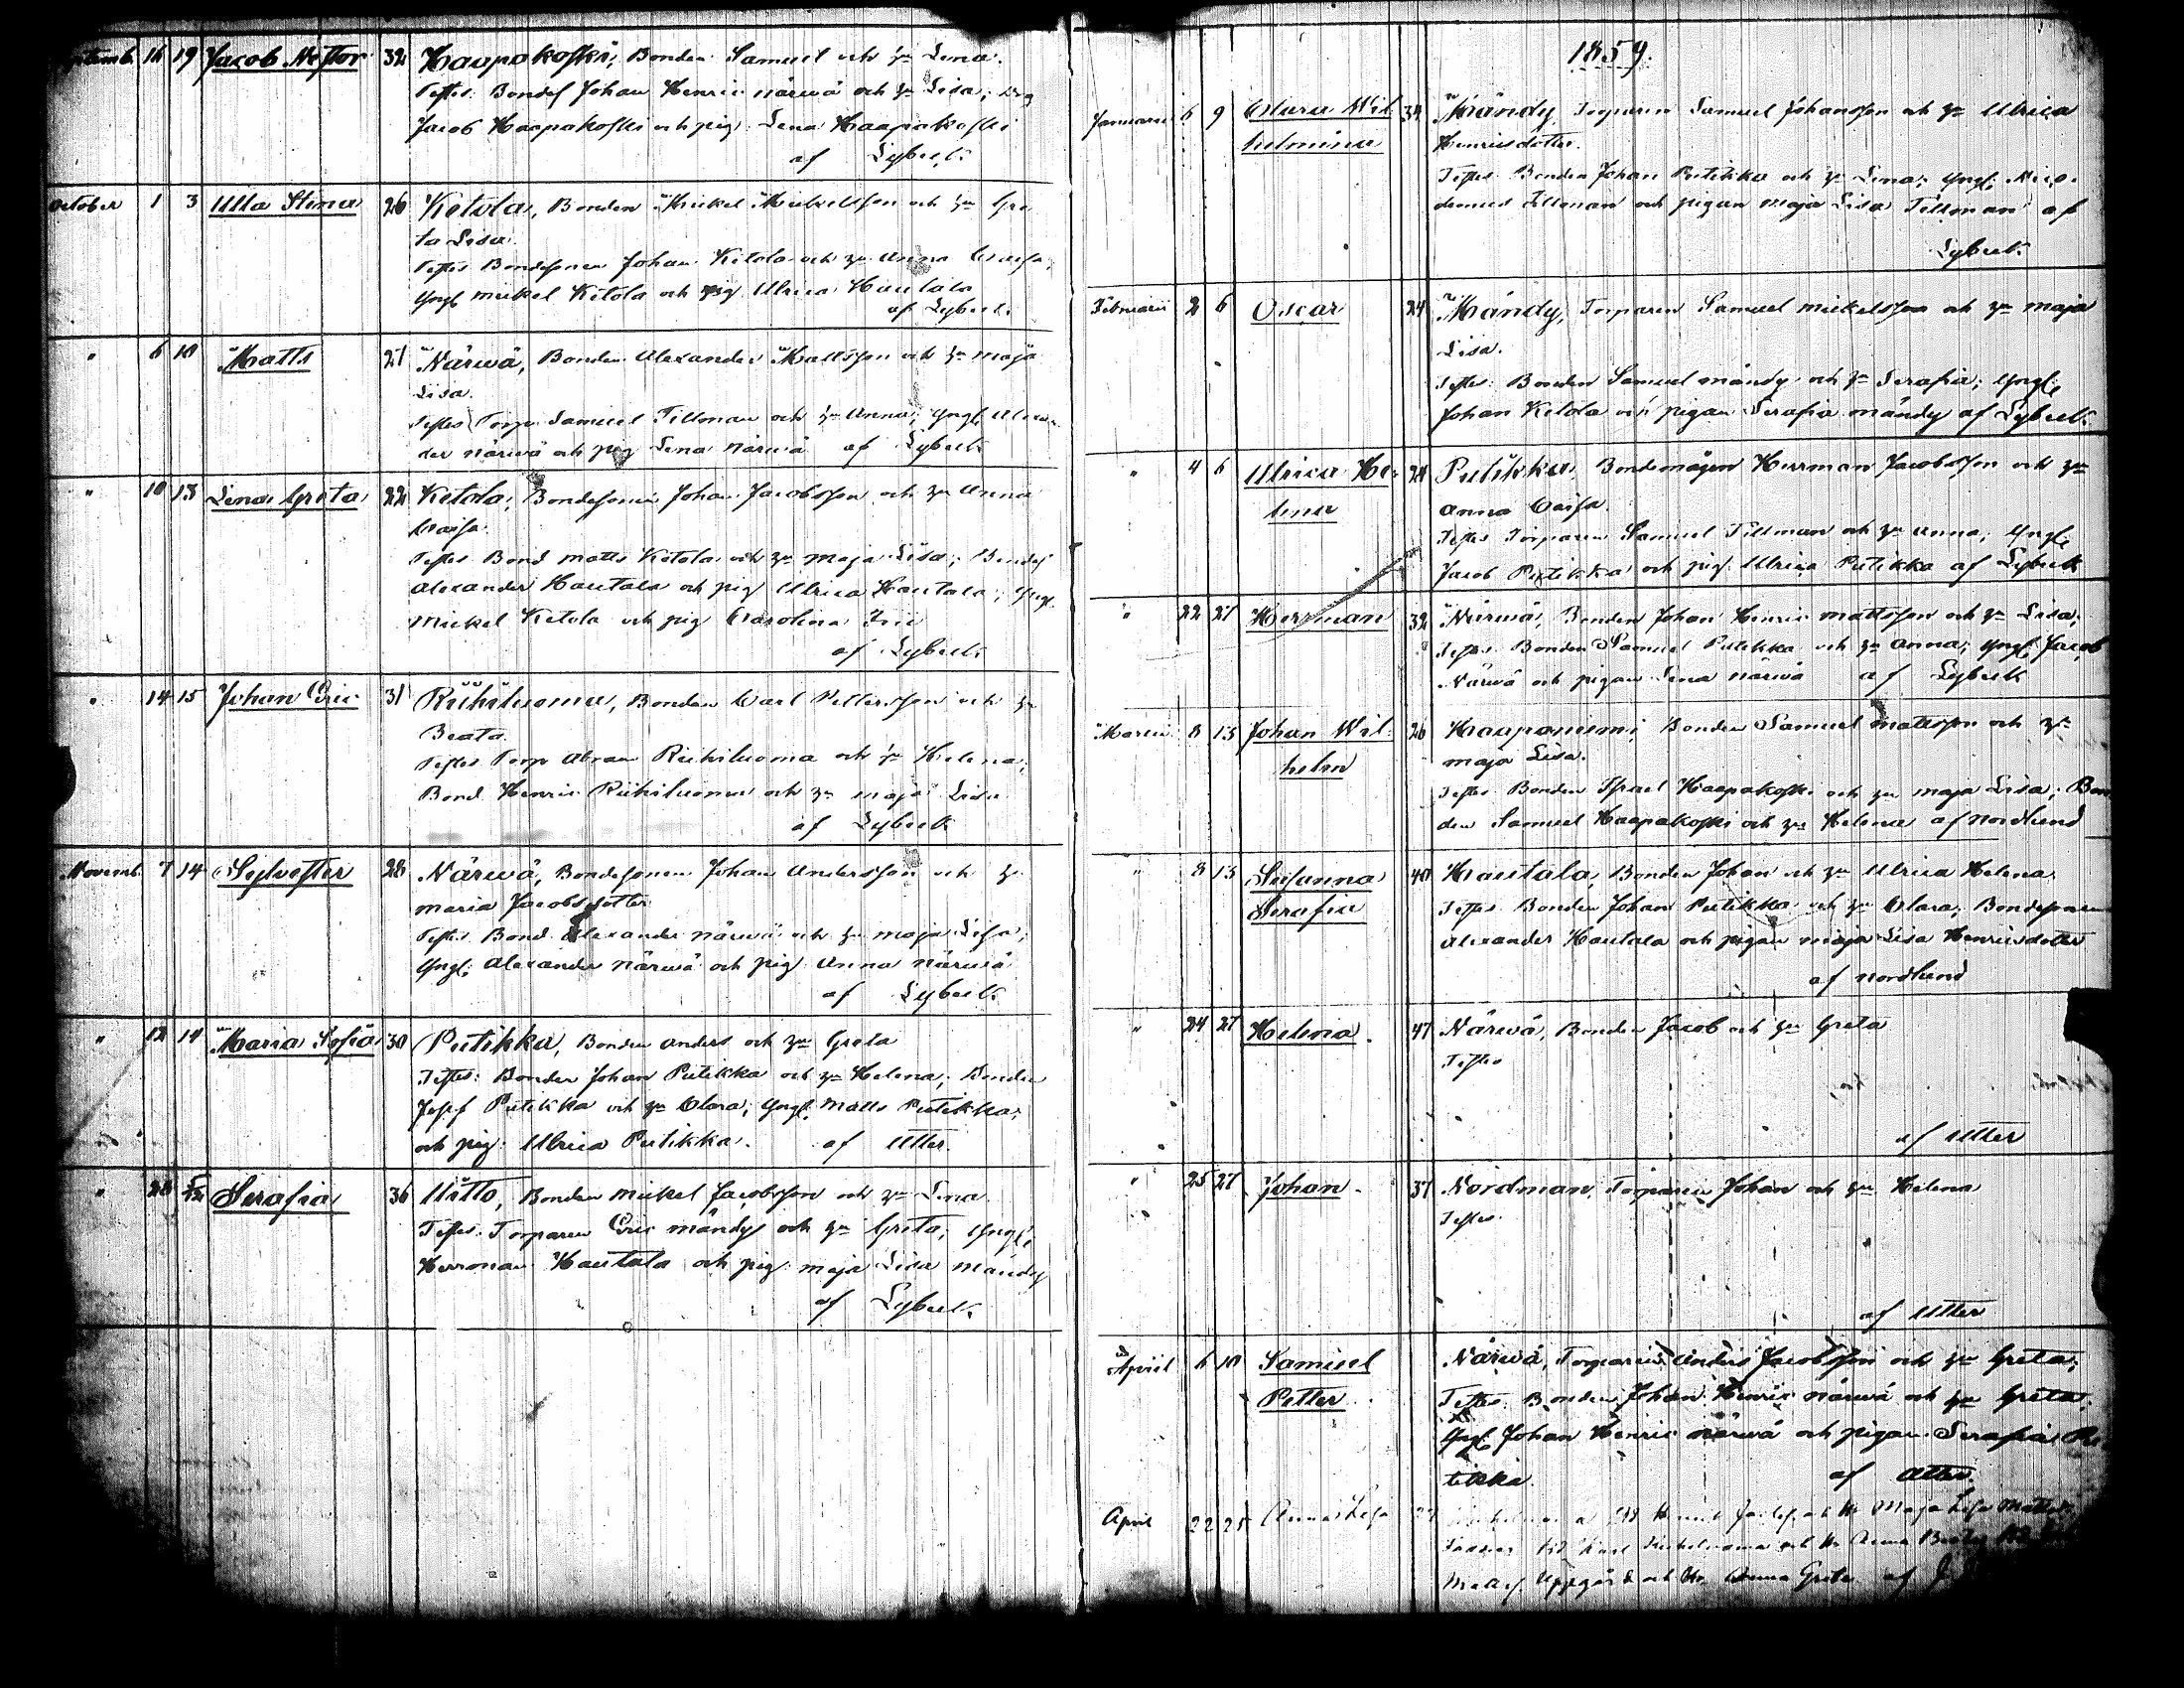 Septemb. 16 19 Jacob Nestor 32 Haapakoski, Bonden Samuel och h:u Lena.
Testes: Bondes Johan Henric Närwä och h:u Lisa; drg
Jacob Haapakoski och pig. Lena Haapakoski
af Lybeck.
October 1 3 Ulla Stina 26 Ketola, Bonden Mickel Mickelsson och h:u Gre
ta Lisa.
Testes Bondesonen Johan Ketola och h:u Anna Caisa;
Yngl. Mickel Ketola och pig Ulrica Hautala
af Lybeck.
" 6 10 Matts 27 Närwä, Bonden Alexander Mattsson och h:u Maja
Lisa.
Testes Torp. Samuel Tillman och h:u Anna; Yngl. Alexan-
der Närwä och pig Lena Närwä af Lybeck
" 10 13 Lena Greta 22 Ketola, Bondesonen Johan Jacobsson och h:u Anna
Caisa.
Testes Bond Matts Ketola och h:u Maja Lisa; Bondes
Alexander Hautala och pig Ulrica Hautala; Yngl.
Mickel Ketola och pig Carolina
af Lybeck.
" 14 15 Johan Eric 31 Riihiluoma, Bonden Carl Pettersson och h:u
Beata.
Testes Torp Abram Riihiluoma och h:u Helena;
Bond. Henric Riihiluoma och h:u Maja Lisa
af Lybeck
Novemb. 7 14 Sylvester 28 Närwä, Bondesonen Johan Andersson och h:u
Maria Jacobsdotter
Testes Bond. Alexander Närwä och h:u Maja Lisa;
Yngl. Alexander Närwä och pig Anna Närwä
af Lybeck.
" 12 14 Maria Sofia 30 Putikka, Bonden Anders och h:u Greta
Testes: Bonden Johan Putikka och h:u Helena; Bonden
Josef Putikka och h:u Clara; Yngl. Matts Putikka;
och pig. Ulrica Putikka. af Utter.
" 28 Serafia 36 Uitto, Bonden Mickel Jacobsson och h:u Lena
Testes. Torparen Eric Mändy och h:u Greta; Yngl.
Herrman Hautala och pig: Maja Lisa Mändy
af Lybeck.
1859.
Januarii 6 9 Clara Wil 34 Mändy, Torparen Samuel Johansson och h:u Ulrica
helmina Henricsdotter.
Testes Bonden Johan Putikka och h:u Lena; Yngl. Nico-
demus Tillman och pigan Maja Lisa Tillman af
Lybeck.
Februarii 2 6 Oscar 24 Mändy, Torparen Samuel Mickelsson och h:u Maja
Lisa.
Testes: Bonden Samuel Mändy och h:u Serafia; Yngl.
Johan Ketola och pigan Serafia Mändy af Lybeck.
" 4 6 Ulrica He- 24 Putikka, Bondemågen Herrman Jacobsson och h:u
lena Anna Caisa.
Testes Torparen Samuel Tillman och h:u Anna; Yngl.
Jacob Putikka och pig. Ulrica Putikka af Lybeck
" 22 27 Herrman 32 Närwä, Bonden Johan Henric Mattsson och h:u Lisa;
Testes. Bonden Samuel Putikka och h:u Anna; Yngl. Jacob
Närwä och pigan Lena Närwä af Lybeck
Martii 8 13 Johan Wil- 26 Haapaniemi, Bonden Samuel Mattsson och h:u
helm Maja Lisa.
Testes Bonden Israel Haapakoski och h:u Maja Lisa; Bon
den Samuel Haapakoski och h:u Helena af Nordlund
" 8 13 Susanna 40 Hautala, Bonden Johan och h:u Ulrica Helena.
Serafia Testes. Bonden Johan Putikka och h:u Clara; Bondesonen
Alexander Hautala och pigan Maja Lisa Henricsdotter
af Nordlund
" 24 27 Helena. 47 Närwä, Bonden Jacob och h:u Greta
Testes
af Utter
" 25 27 Johan. 37 Nordman, Torparen Johan och h:u Helena
Testes.
af Utter
April 6 10 Samuel Närwä, Torparen Anders Jacobsson och h:u Greta;
Petter Testes. Bonden Johan Henric Närwä och h:u Greta.
Yngl. Johan Henric Närwä och pigan Serafia Pu
tikka. af Utter.
April 22 25 Anna Lisa och Maja Lisa
Karl och Anna
Uppgård och Anna Greta af